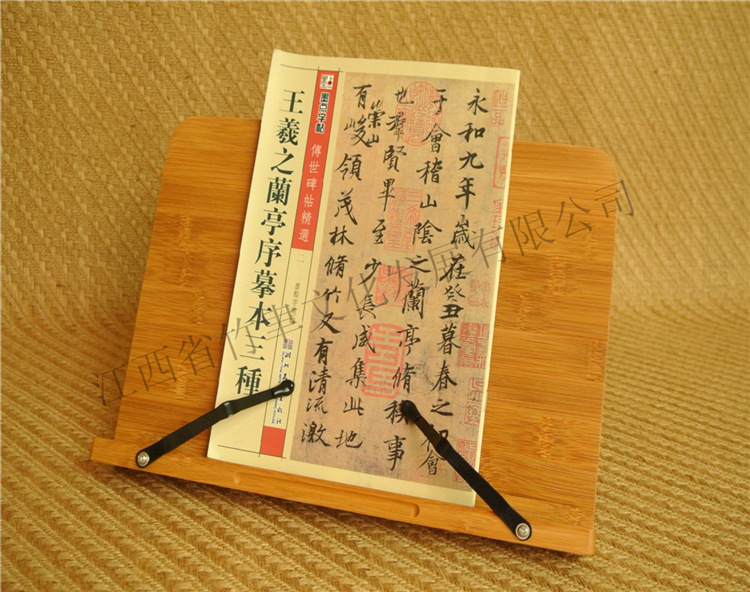 永和九年歲在癸丑暮春之初會
于會稽山陰之蘭亭脩稧事
也群賢畢至少長咸集此地
有崇山峻領茂林脩竹又有清流激
墨点字帖
傳世碑帖精選
二
王羲之蘭亭序摹本三種
江西省竹聿文化发展有限公司